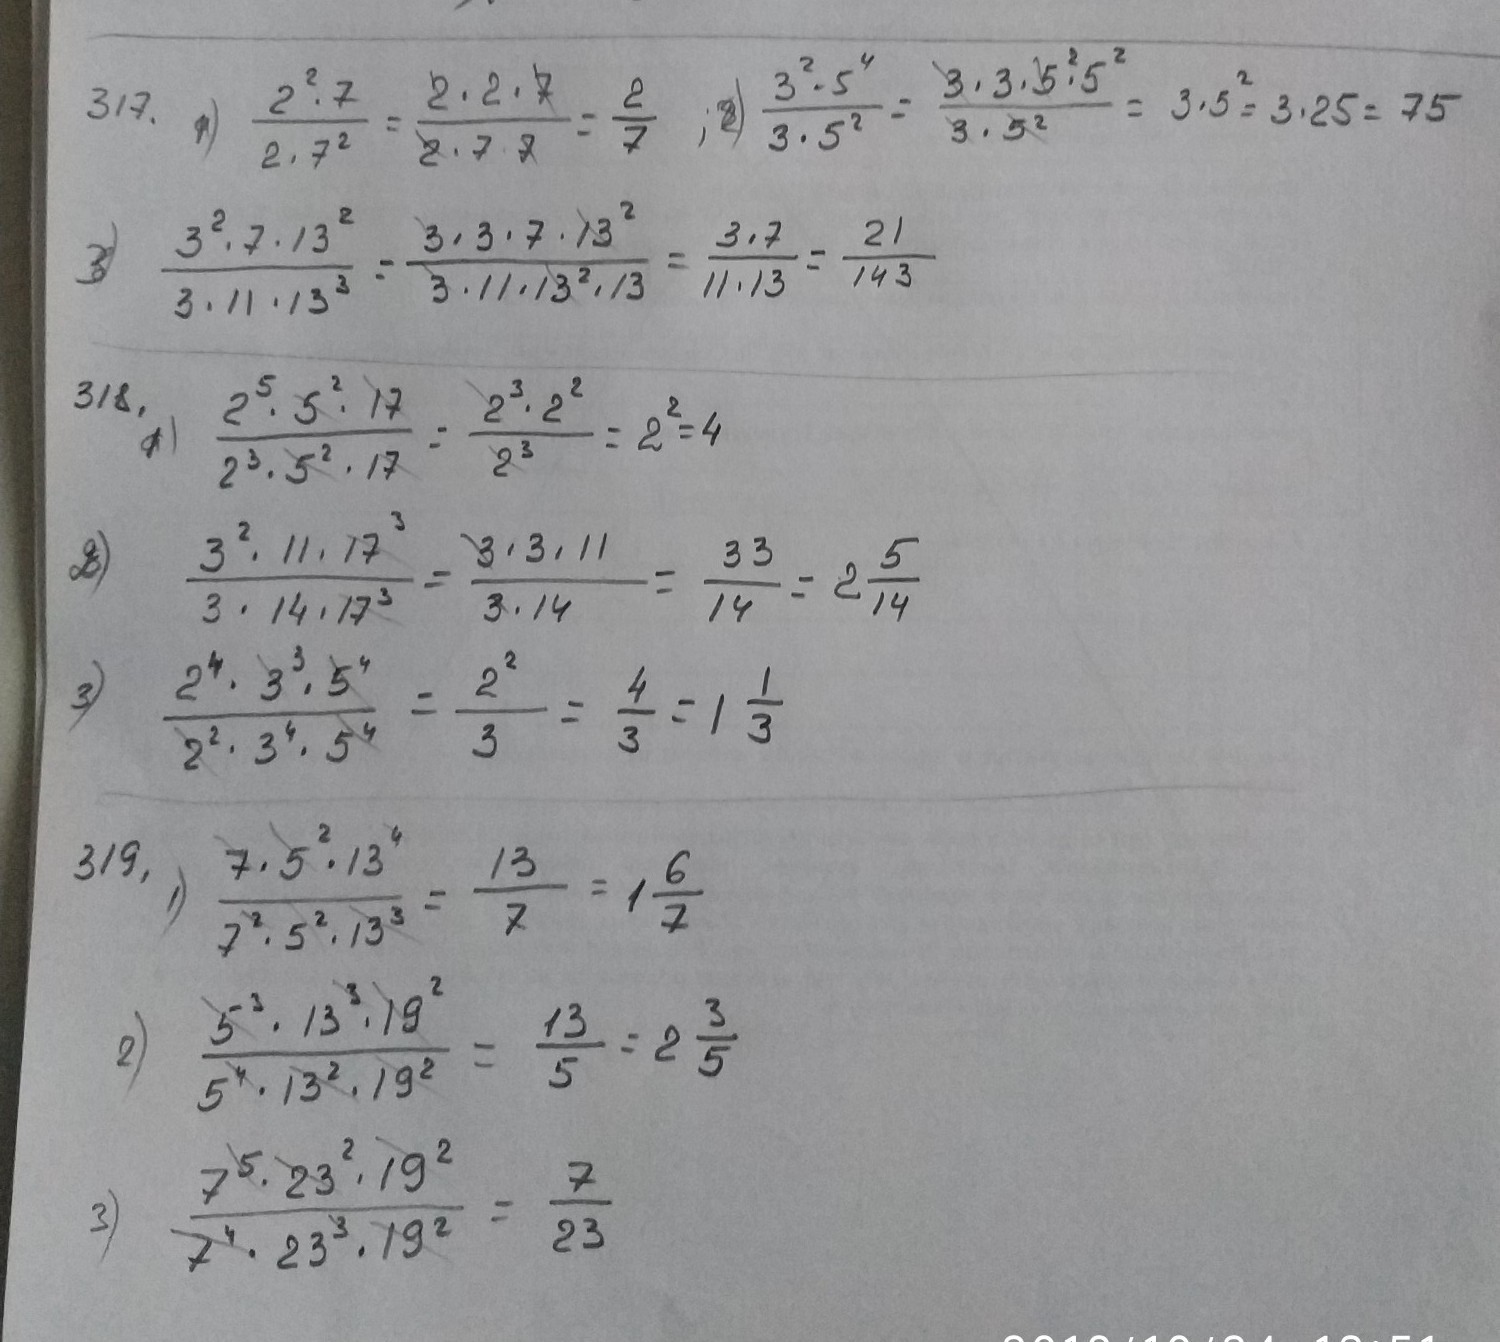 317. 1) (2²·7)/(2·7²) = (2·2·7)/(2·7·7) = 2/7 ; 2) (3²·5⁴)/(3·5²) = (3·3·5²·5²)/(3·5²) = 3·5² = 3·25 = 75
3) (3²·7·13²)/(3·11·13³) = (3·3·7·13²)/(3·11·13²·13) = (3·7)/(11·13) = 21/143
318. 1) (2⁵·5²·17)/(2³·5²·17) = (2³·2²)/2³ = 2² = 4
2) (3²·11·17³)/(3·14·17³) = (3·3·11)/(3·14) = 33/14 = 2 5/14
3) (2⁴·3³·5⁴)/(2²·3⁴·5⁴) = 2²/3 = 4/3 = 1 1/3
319. 1) (7·5²·13⁴)/(7²·5²·13³) = 13/7 = 1 6/7
2) (5³·13³·19²)/(5⁴·13²·19²) = 13/5 = 2 3/5
3) (7⁵·23²·19²)/(7⁴·23³·19²) = 7/23